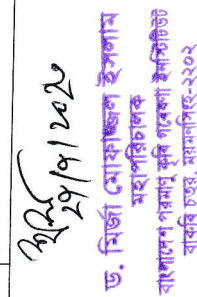 ২৭/৭/২০২০
ড. মির্জা মোফাজ্জল ইসলাম
মহাপরিচালক
বাংলাদেশ পরমাণু কৃষি গবেষণা ইনস্টিটিউট
বাকৃবি চত্বর, ময়মনসিংহ-২২০২